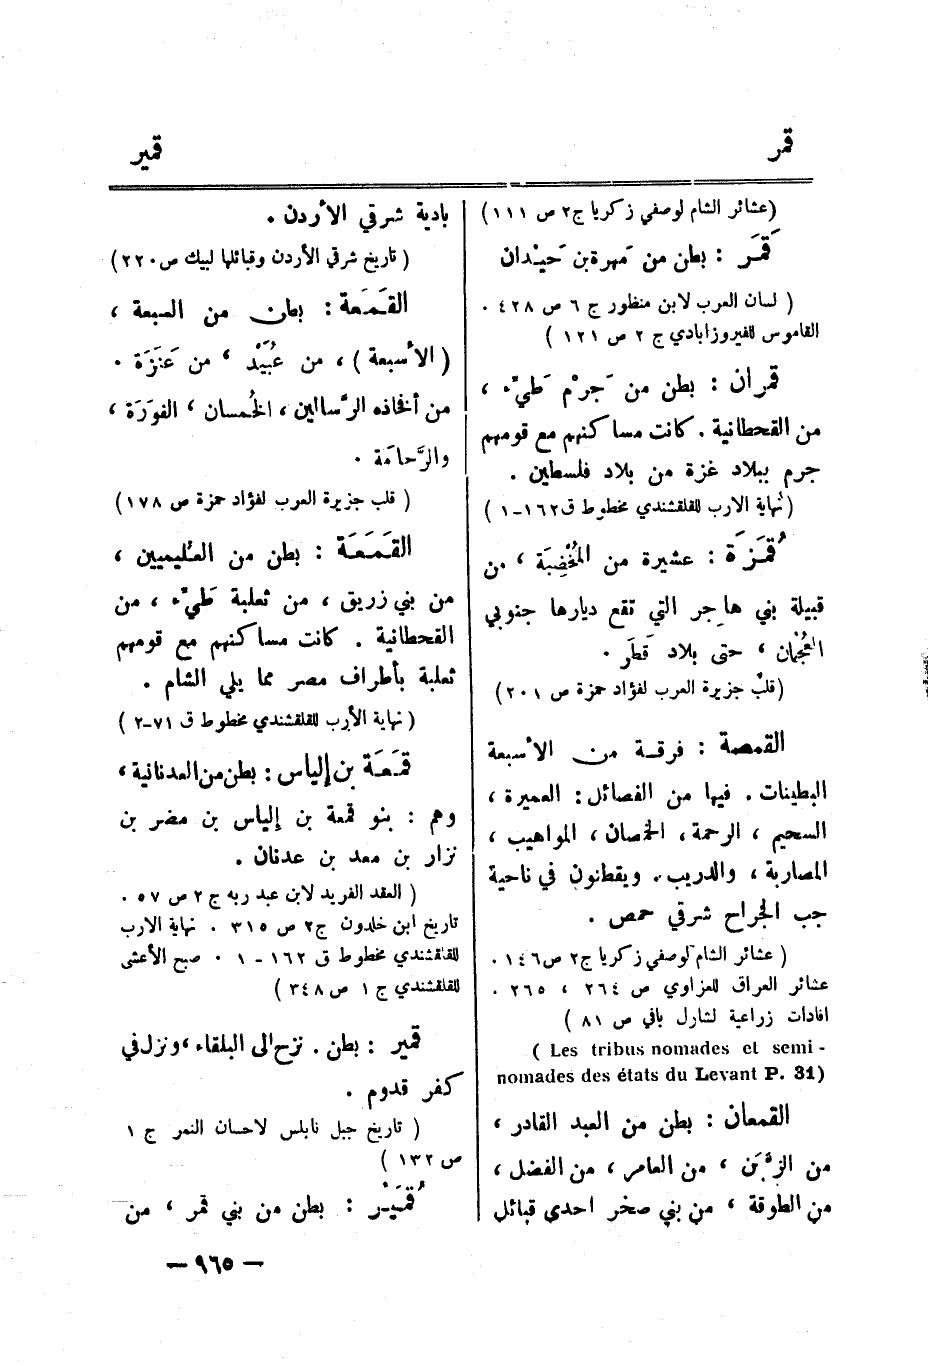 قمر
قمير
(عشائر الشام لوصفي زكريا ج٢ ص ١١١)
قَمَر : بطن من مهرة بن حَيْدان
( لسان العرب لابن منظور ج ٦ ص ٤٢٨ .
القاموس للفيروزابادي ج ٢ ص ١٢١ )
قمران : بطن من جَرْم طَيّء ،
من القحطانية . كانت مساكنهم مع قومهم
جرم ببلاد غزة من بلاد فلسطين .
(نهاية الارب للقلقشندي مخطوط ق١٦٢-١ )
قُمَزَة : عشيرة من المُخْضِبَة ، من
قبيلة بني هاجر التي تقع ديارها جنوبي
العُجْمان ، حتى بلاد قَطَر .
(قلب جزيرة العرب لفؤاد حمزة ص ٢٠١)
القمصة : فرقة من الأسبعة
البطينات . فيها من الفصائل : العميرة ،
السحيم ، الرحمة ، الخمصان ، المواهيب ،
المصاربة ، والدريب . ويقطنون في ناحية
جب الجراح شرقي حمص .
( عشائر الشام لوصفي زكريا ج٢ ص١٤٦ .
عشائر العراق للعزاوي ص ٢٦٤ ، ٢٦٥ .
افادات زراعية لشارل بافي ص ٨١ )
( Les tribus nomades et semi -
nomades des états du Levant P. 31)
القمعان : بطن من العبد القادر ،
من الزَّبَن ، من العامر ، من الفضل ،
من الطوقة ، من بني صخر احدى قبائل
بادية شرقي الأردن .
( تاريخ شرقي الأردن وقبائلها لبيك ص٢٢٠)
القَمَعة : بطن من السبعة ،
(الأسبعة) ، من عُبَيْد ، من عَنَزَة .
من أفخاذه الرَّسالين ، الخُمسان ، الفوَرَة ،
والرَّحامَة .
( قلب جزيرة العرب لفؤاد حمزة ص ١٧٨)
القَمَعَة : بطن من العُليميين ،
من بني زريق ، من ثعلبة طَيّء ، من
القحطانية . كانت مساكنهم مع قومهم
ثعلبة بأطراف مصر مما يلي الشام .
( نهاية الأرب للقلقشندي مخطوط ق ٧١-٢ )
قَمَعَة بن إلياس : بطن من العدنانية ،
وهم : بنو قمعة بن إلياس بن مضر بن
نزار بن معد بن عدنان .
( العقد الفريد لابن عبد ربه ج ٢ ص ٥٧ .
تاريخ ابن خلدون ج٢ ص ٣١٥ . نهاية الارب
للقلقشندي مخطوط ق ١٦٢ - ١ . صبح الأعشى
للقلقشندي ج ١ ص ٣٤٨ )
قمير : بطن . نزح الى البلقاء ، ونزل في
كفر قدوم .
( تاريخ جبل نابلس لاحسان النمر ج ١
ص ١٣٢ )
قُمَيْر : بطن من بني قمر ، من
— ٩٦٥ —